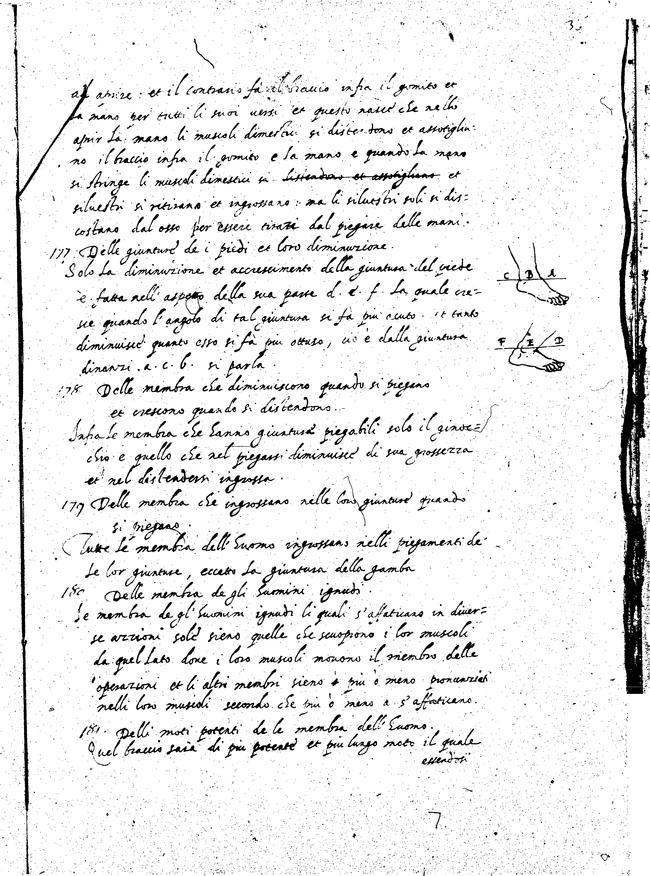 3
ad aprire: et il contrario fà il braccio infra il gomito et
la mano per tutti li suoi versi et questo nasce che nello
aprir la mano li muscoli dimestici si distendono et assotiglia-
no il braccio infra il gomito e la mano e quando la mano
si stringe li muscoli dimestici si distendono et assotigliano et
silvestri si ritirano et ingrossano: ma li silvestri soli si dis-
costano dal osso per essere tirati dal piegare delle mani.
177. Delle giunture de i piedi et loro diminuzione.
Solo la diminuzione et accrescimento della giuntura del piede
è fatta nell' aspetto della sua parte d. e. f. la quale cre-
sce quando l'angolo di tal giuntura si fà più acuto. et tanto
diminuisce quanto esso si fà più ottuso, ciò è dalla giuntura
dinanzi. a. c. b. si parla.
C B A
F E D
178. Delle membra che diminuiscono quando si piegano
et crescono quando si distendono.
Infra le membra che hanno giunture piegabili solo il ginoc=
chio e quello che nel piegarsi diminuisce di sua grossezza
et nel distendersi ingrossa.
179 Delle membra che ingrossano nelle loro giunture quando
si piegano.
Tutte le membra dell' huomo ingrossano nelli piegamenti de
le lor giunture, eccetto la giuntura della gamba
180 Delle membra de gli huomini ignudi.
Le membra de gl' huomini ignudi li quali s'affaticano in diver=
se azzioni sole sieno quelle che scuoprono i lor muscoli
da quel lato dove i loro muscoli movono il membro delle
operazioni et li altri membri sieno più o meno pronunziati
nelli loro muscoli secondo che più o meno a s'affaticano.
181. Delli moti potenti de le membra dell' huomo.
Quel braccio sarà di più potente et più lungo moto il quale
essendosi
7